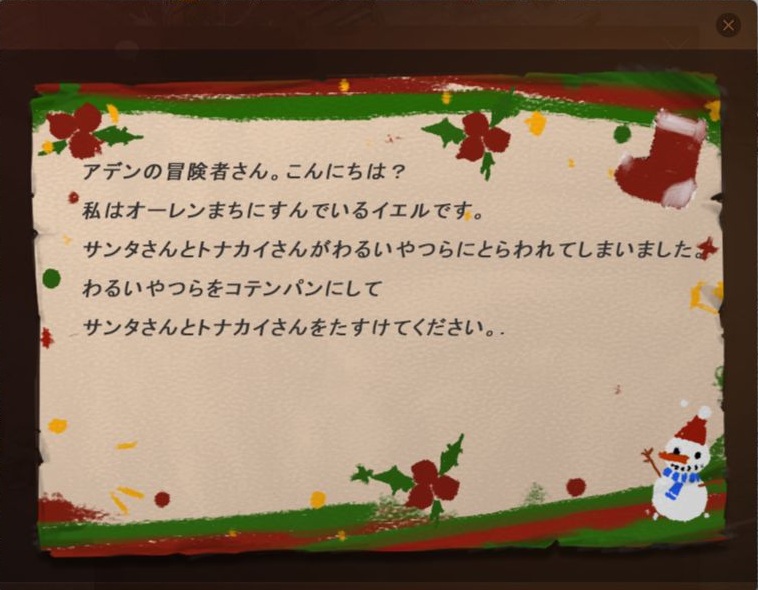 アデンの冒険者さん。こんにちは？
私はオーレンまちにすんでいるイエルです。
サンタさんとトナカイさんがわるいやつらにとらわれてしまいました。
わるいやつらをコテンパンにして
サンタさんとトナカイさんをたすけてください。.